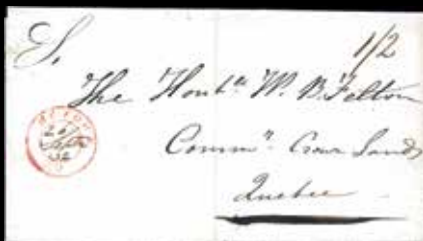 S.
1/2
The Honble W. B. Felton
Commr. Crown Lands
Quebec